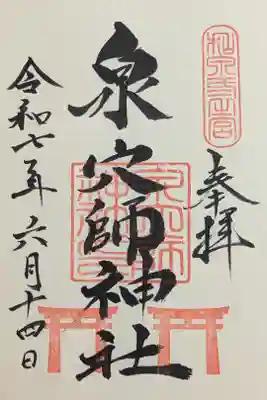 奉拝
泉穴師神社
令和七年六月十四日